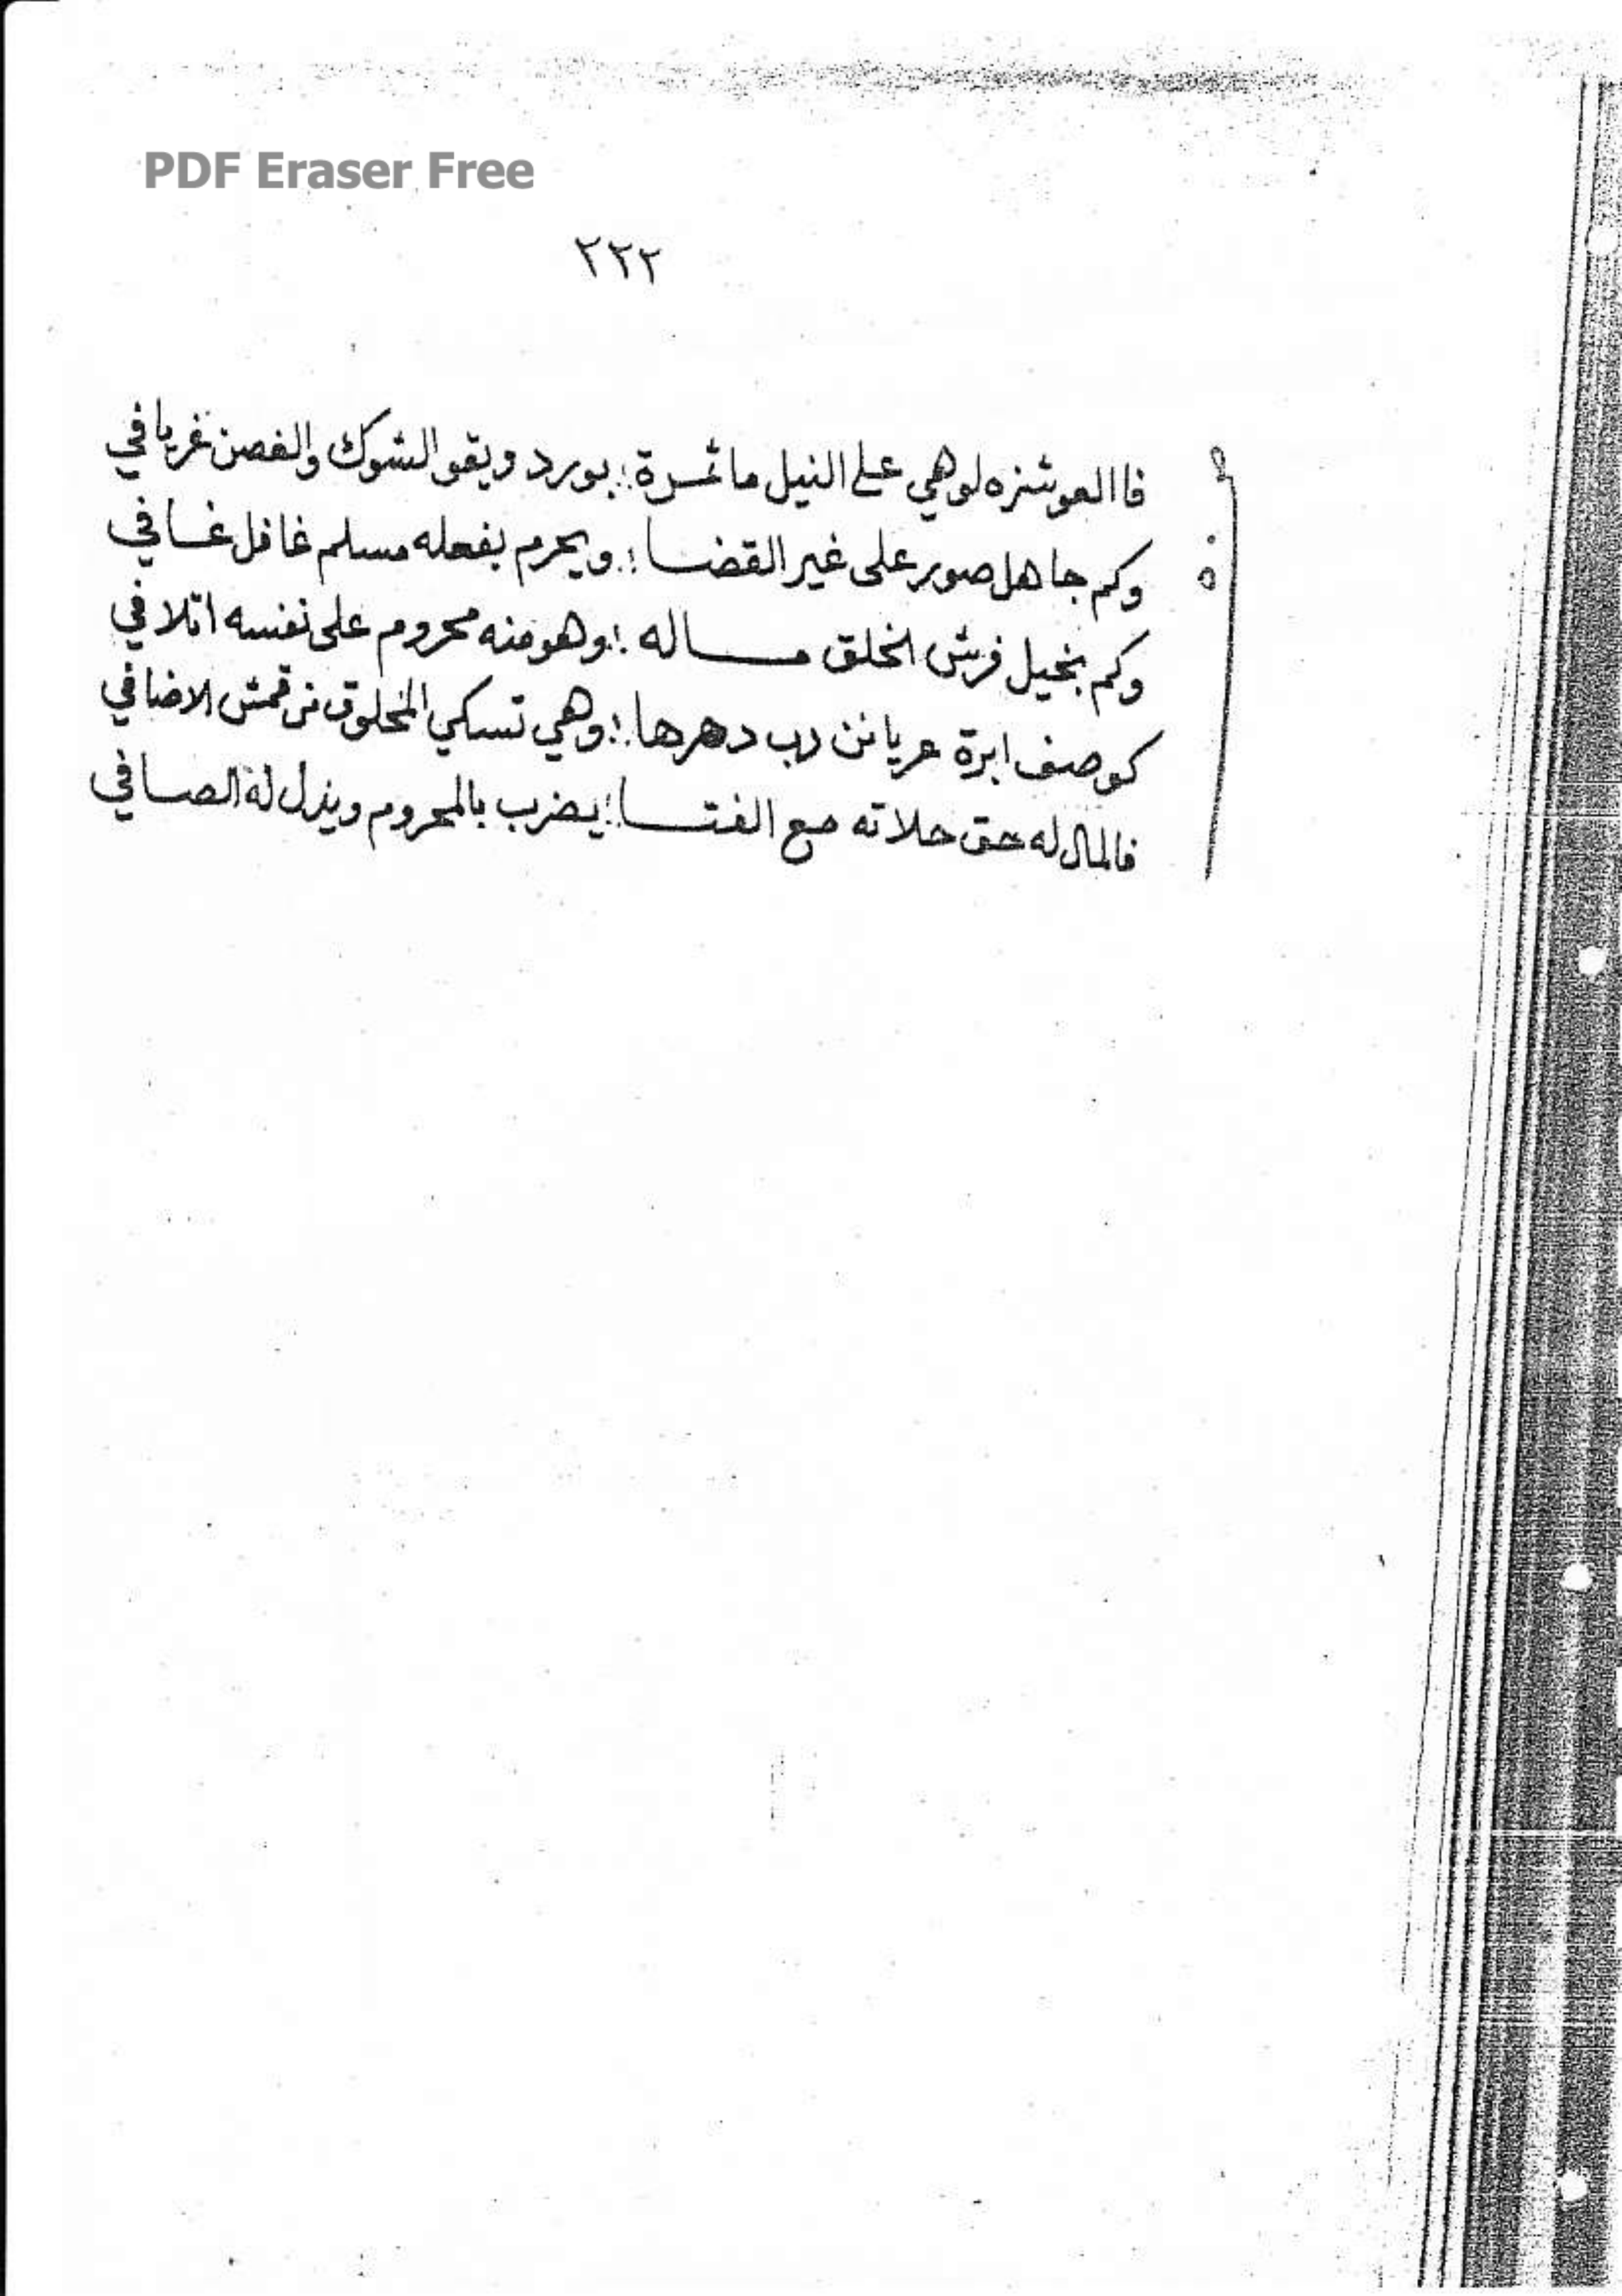 PDF Eraser Free
٢٢٢
فاالعوشزه لو هي على النيل ما ثمرة ؛ بورد ويقو الشوك والغصن غريافي
وكم جاهل صور على غير القضا ؛ ويحرم بفعله مسلم غافل غافي
وكم بخيل فرش الخلق ماله ؛ وهو منه محروم على نفسه اتلافي
كوصف ابرة عريانن رب دهرها ؛ وهي تسكي المخلوق من قمش الاضافي
فالمال له حق حلاته مع الفتا ؛ يضرب بالمحروم وينزل له الصافي